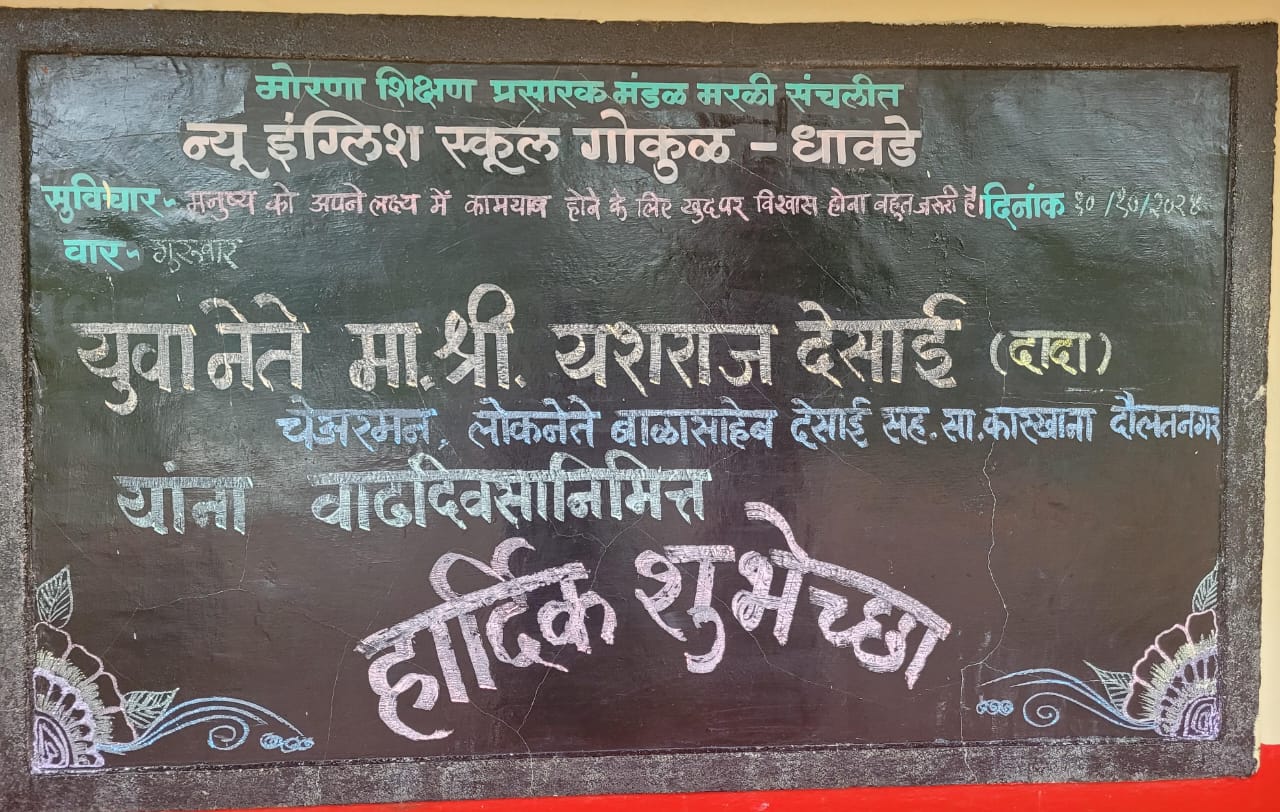 मोरणा शिक्षण प्रसारक मंडळ मरळी संचलीत
न्यू इंग्लिश स्कूल गोकुळ - धावडे
सुविचार - मनुष्य को अपने लक्ष्य में कामयाब होने के लिए खुदपर विश्वास होना बहुत जरूरी है। दिनांक १०/१०/२०२४
वार - गुरुवार
युवा नेते मा. श्री. यशराज देसाई (दादा)
चेअरमन, लोकनेते बाळासाहेब देसाई सह. सा. कारखाना दौलतनगर
यांना वाढदिवसानिमित्त
हार्दिक शुभेच्छा